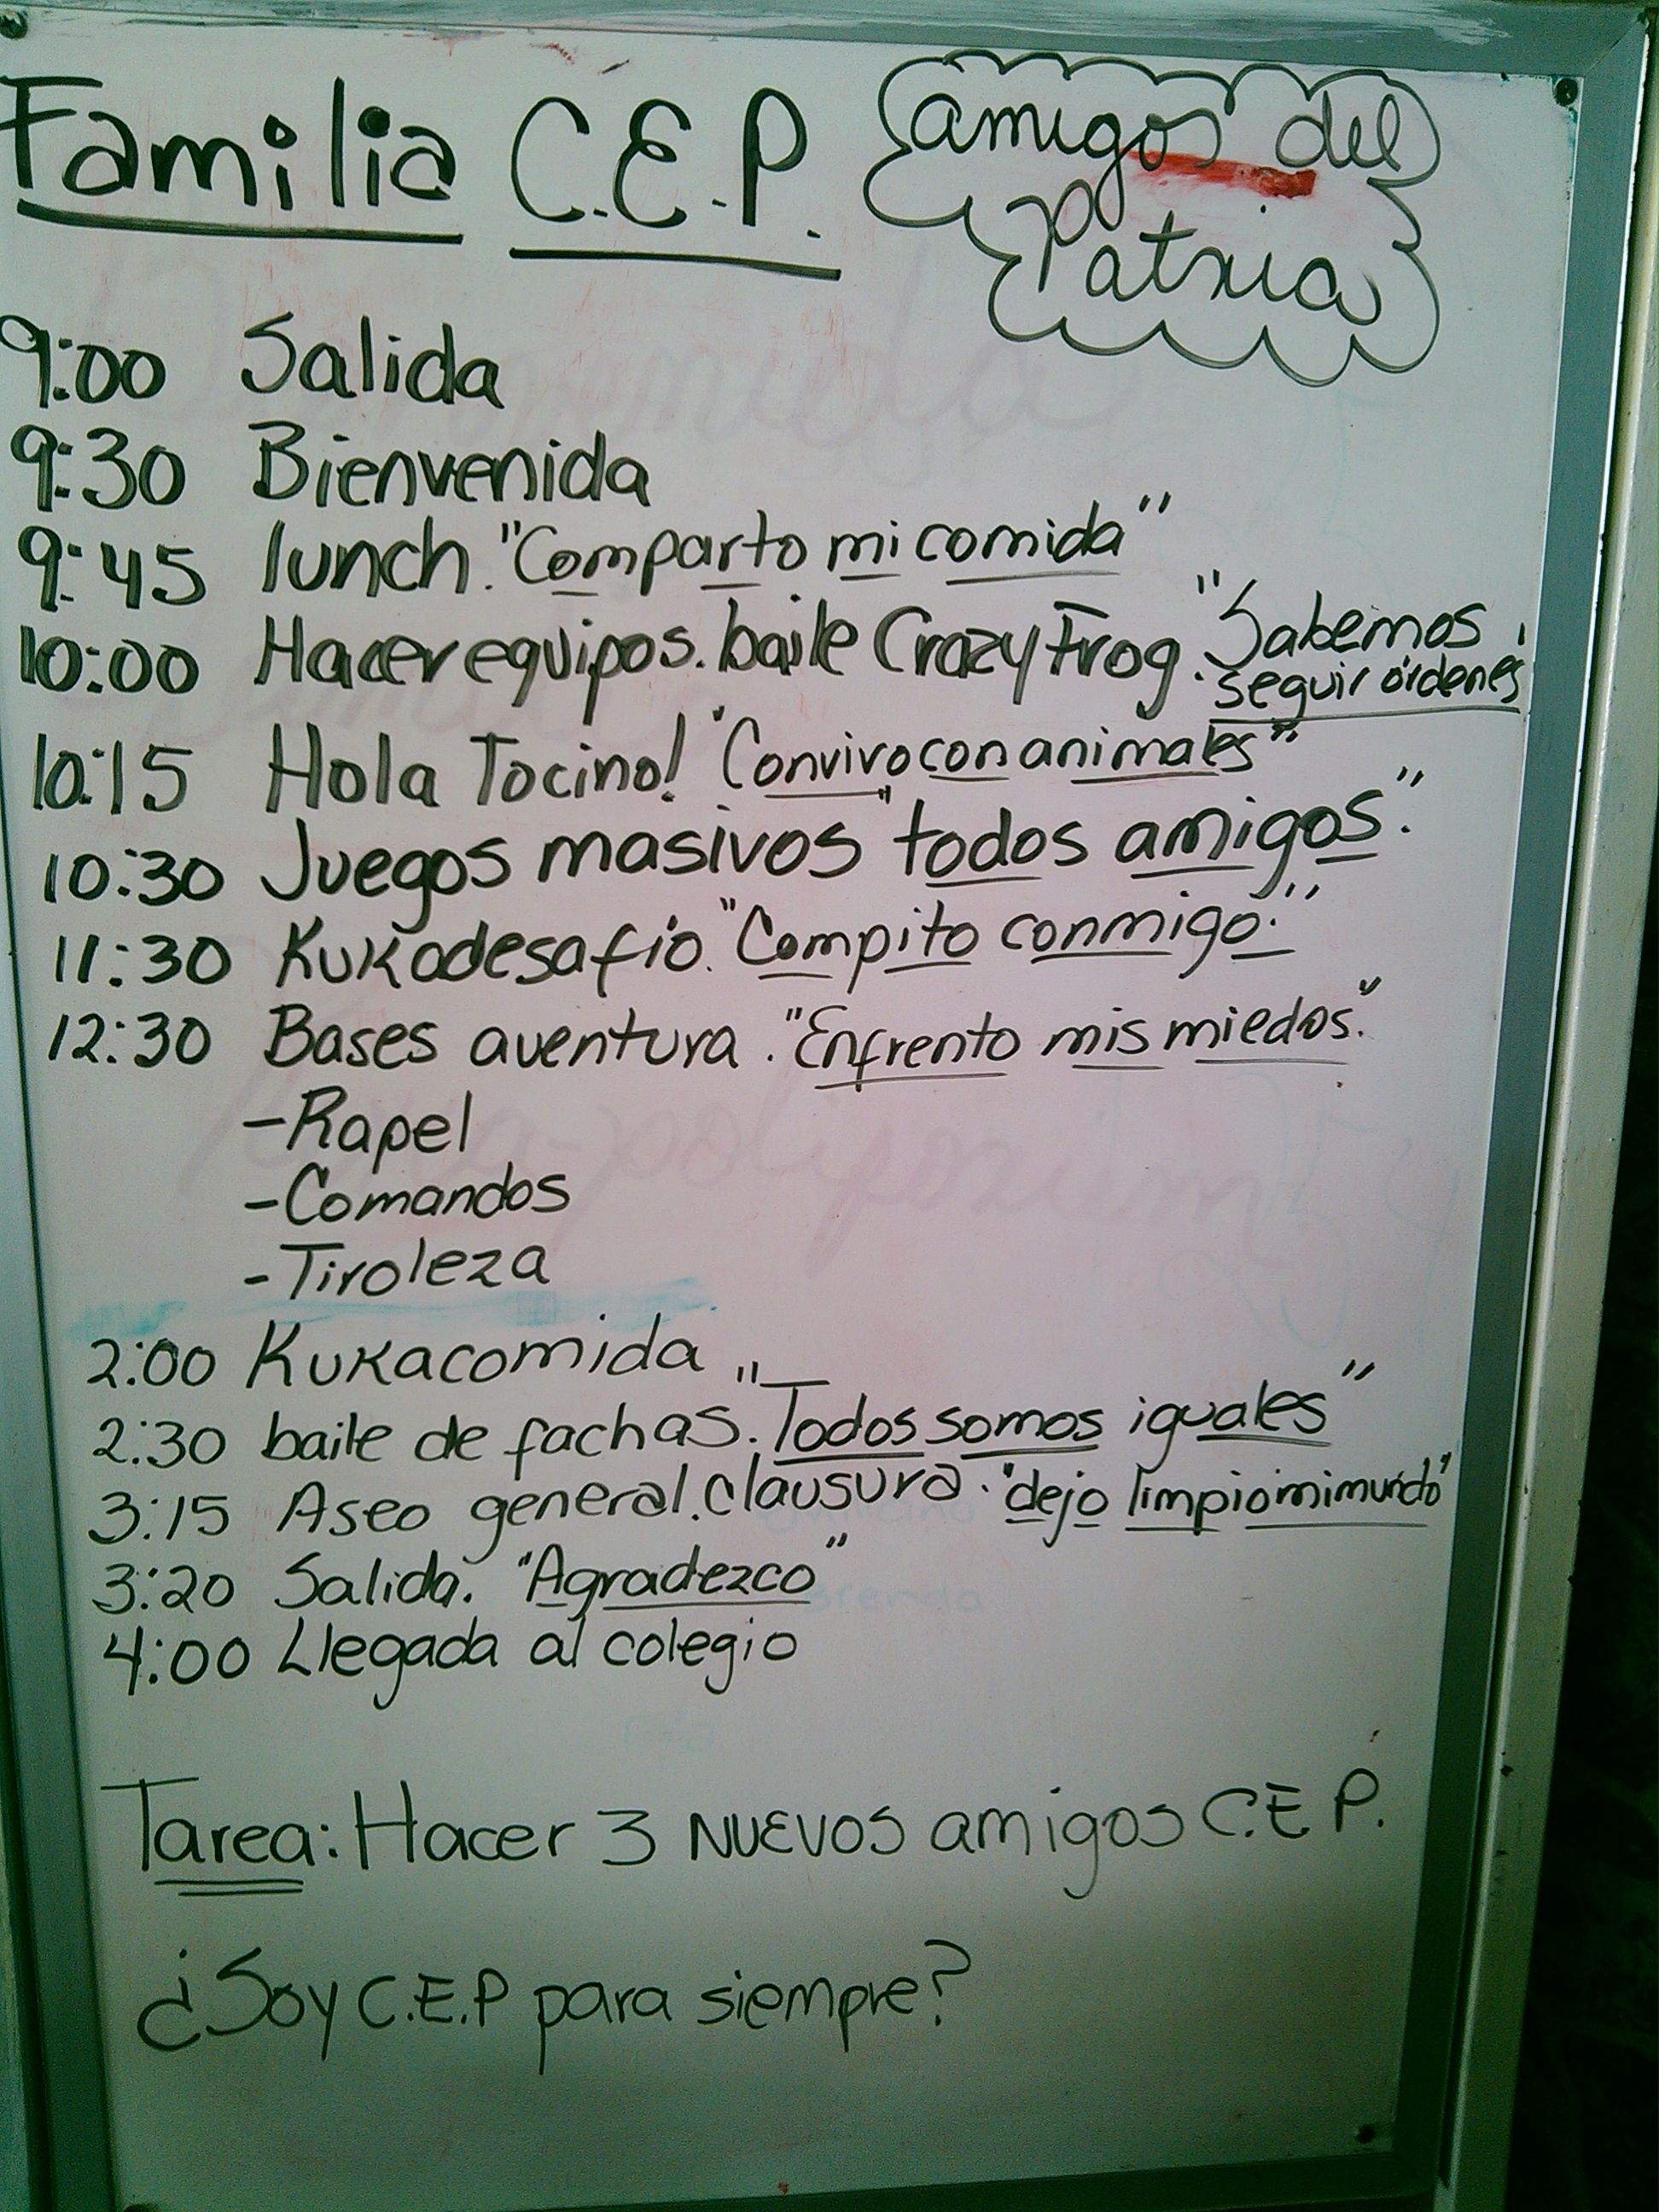 Familia C.E.P.
amigos del
Patria
9:00 Salida
9:30 Bienvenida
9:45 lunch. "Comparto mi comida"
10:00 Hacer equipos. baile Crazy Frog. "Sabemos
seguir órdenes"
10:15 Hola Tocino! "Convivo con animales"
10:30 Juegos masivos "todos amigos."
11:30 Kukadesafío. "Compito conmigo."
12:30 Bases aventura. "Enfrento mis miedos."
-Rapel
-Comandos
-Tiroleza
2:00 Kukacomida
2:30 baile de fachas. "Todos somos iguales"
3:15 Aseo general. clausura. "dejo limpio mi mundo"
3:20 Salida. "Agradezco"
4:00 Llegada al colegio
Tarea: Hacer 3 NUEVOS amigos C.E.P.
¿Soy C.E.P para siempre?